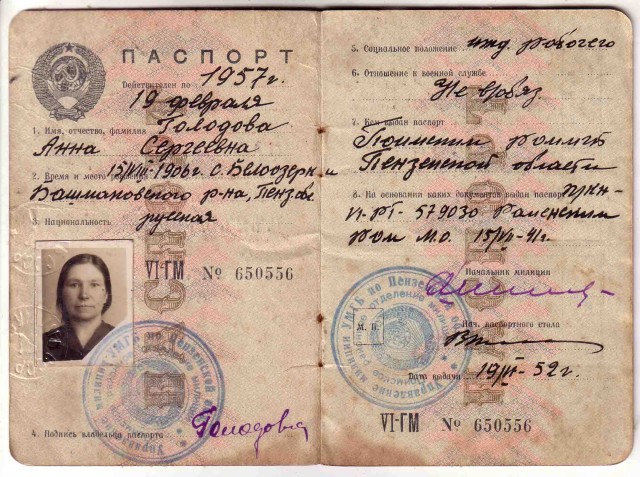 ПАСПОРТ
Действителен по 1957 г.
19 февраля
Голодова
1. Имя, отчество, фамилия
Анна Сергеевна
15/VII-1906 г. с. Белоозерки
2. Время и место рождения
Башмаковского р-на, Пензов.
3. Национальность русская
VI-ГМ № 650556
4. Подпись владельца паспорта Голодова
5. Социальное положение ижд. рабочего
6. Отношение к военной службе
Не в/обяз.
7. Кем выдан паспорт
Поимским РОМГБ
Пензенской области
8. На основании каких документов выдан паспорт
РТ-579030 Раменским
РОМ М.О. 15/VII-41 г.
Начальник милиции
М. П.
Нач. паспортного стола
Дата выдачи 19/II-52 г.
VI-ГМ № 650556
Управление милиции УМГБ по Пензенской